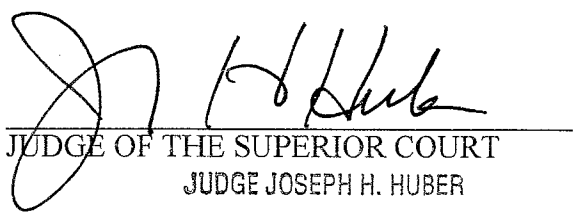 J H Huber
JUDGE OF THE SUPERIOR COURT
JUDGE JOSEPH H. HUBER